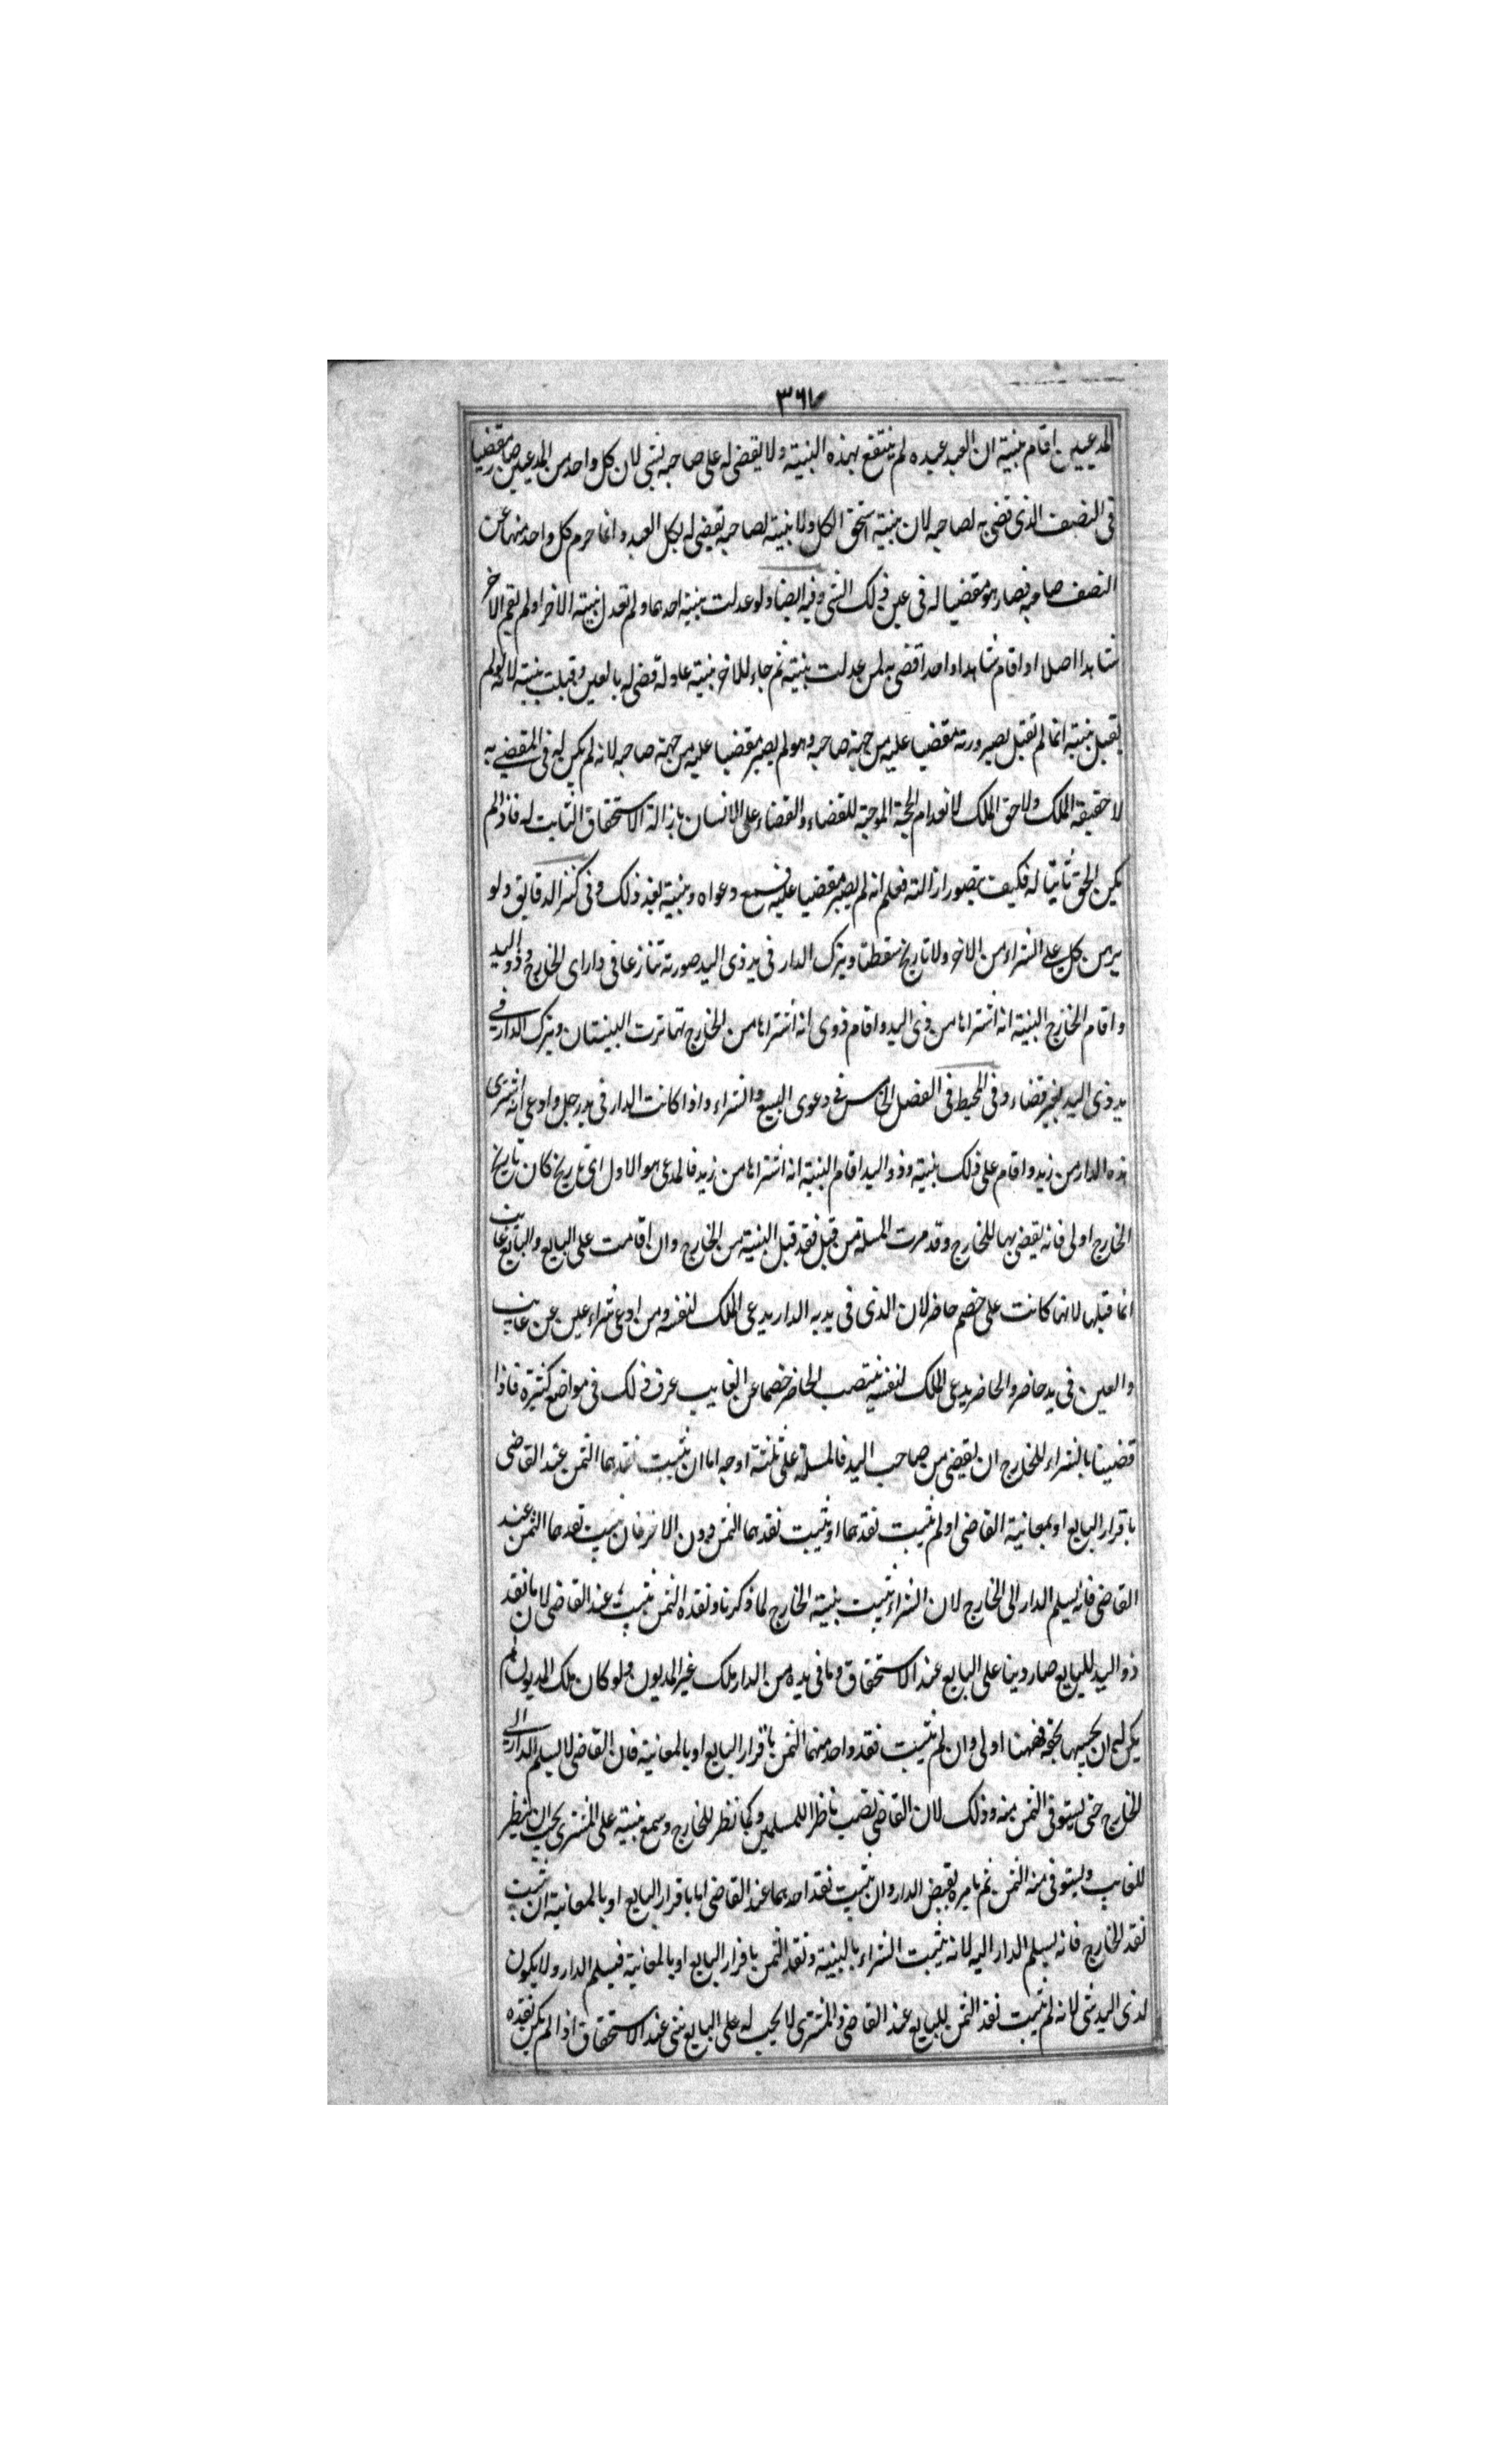 ٣٦٧
المدعيين اقام بينة ان العبد عبده لم ينتفع بهذه البينة ولا يقضى له على صاحبه بشى لان كل واحد من المدعيين صار مقضيا
فى النصف الذى قضى به لصاحبه لان بينة استحق الكل ولا بينة لصاحبه يقضى له بكل العبد وانما حرم كل واحد منهما عن
النصف صاحبه فصار هو مقضيا له فى عين ذلك الشى وفيه ايضا ولو عدلت بينة احدهما ولم تعدل بينة الاخر او لم يقم الاخر
شاهدا اصلا او اقام شاهدا واحدا قضى به لمن عدلت بينته ثم جاء للاخر بينة عادلة قضى له بالعين وقبلت بينته لانه لو لم
تقبل بينته انما لم تقبل لصيرورته مقضيا عليه من جهة صاحبه وهو لم يصير مقضيا عليه من جهة صاحبه لانه لم يكن له فى المقضى به
لا حقيقة الملك ولا حق الملك لانعدام الحجة الموجبة للقضاء والقضاء على الانسان بازالة الاستحقاق الثابت له فاذا لم
يكن الحق ثابتا له فكيف يتصور ازالته فعلم انه لم يصير مقضيا عليه فسمع دعواه وبينته بعد ذلك وفى كنز الدقايق ولو
برهن كل على الشراء من الاخر ولا تاريخ سقطتا ويترك الدار فى يد ذى اليد صورته تنازعا فى دار اى الخارج وذو اليد
واقام الخارج البينة انه اشتراها من ذى اليد واقام ذوى انه اشتراها من الخارج تهاترت البينتان ويترك الدار فى
يد ذى اليد بغير قضاء وفى المحيط فى الفصل الخامس فى دعوى البيع والشراء واذا كانت الدار فى يد رجل وادعى انه اشترى
هذه الدار من زيد واقام على ذلك بينة وذو اليد اقام البينة انه اشتراها من زيد فالمدعى هو الاول اى تاريخ كان تاريخ
الخارج اولى فانه يقضى بها للخارج وقد مرت المسئلة من قبل فقد قبل البينة من الخارج وان اقامت على البايع والبايع غايب
انما قبلها لانها كانت على خصم حاضر لان الذى فى يديه الدار يدعى الملك لنفسه ومن ادعى شراء عين من غايب
والعين فى يد حاضر والحاضر يدعى الملك لنفسه ينتصب الحاضر خصما عن الغايب عرف ذلك فى مواضع كثيرة فاذا
قضينا بالشراء للخارج ان يقضى من صاحب اليد فالمسئلة على ثلثة اوجه اما ان يثبت نقدهما الثمن عند القاضى
باقرار البايع او بمعاينة القاضى او لم يثبت نقدهما او يثبت نقدهما الثمن دون الاخر فان يثبت نقدهما الثمن عند
القاضى فانه يسلم الدار الى الخارج لان الشراء يثبت بينة الخارج لما ذكرنا ونقده الثمن يثبت عند القاضى لان ما نقد
ذو اليد للبايع صار دينا على البايع عند الاستحقاق وما فى يده من الدار ملك غير المديون ولو كان ملك المديون لم
يكن له ان يحبسها بحقه فههنا اولى وان لم يثبت نقد واحد منهما الثمن باقرار البايع او بالمعاينة فان القاضى لا يسلم الدار الى
الخارج حتى يستوفى الثمن منه وذلك لان القاضى نصب ناظرا للمسلمين وكما نظر للخارج وسمع بينته على المشترى يجب ان ينظر
للغايب ويستوفى منه الثمن ثم يامره بقبض الدار وان يثبت نقد احدهما عند القاضى اما باقرار البايع او بالمعاينة ان يثبت
نقد الخارج فانه يسلم الدار اليه لانه يثبت الشراء بالبينة ونقد الثمن باقرار البايع او بالمعاينة فيسلم الدار ولا يكون
لذى اليد شى لانه لم يثبت نقد الثمن للبايع عند القاضى والمشترى لا يجب له على البايع شى عند الاستحقاق اذا لم يكن نقده